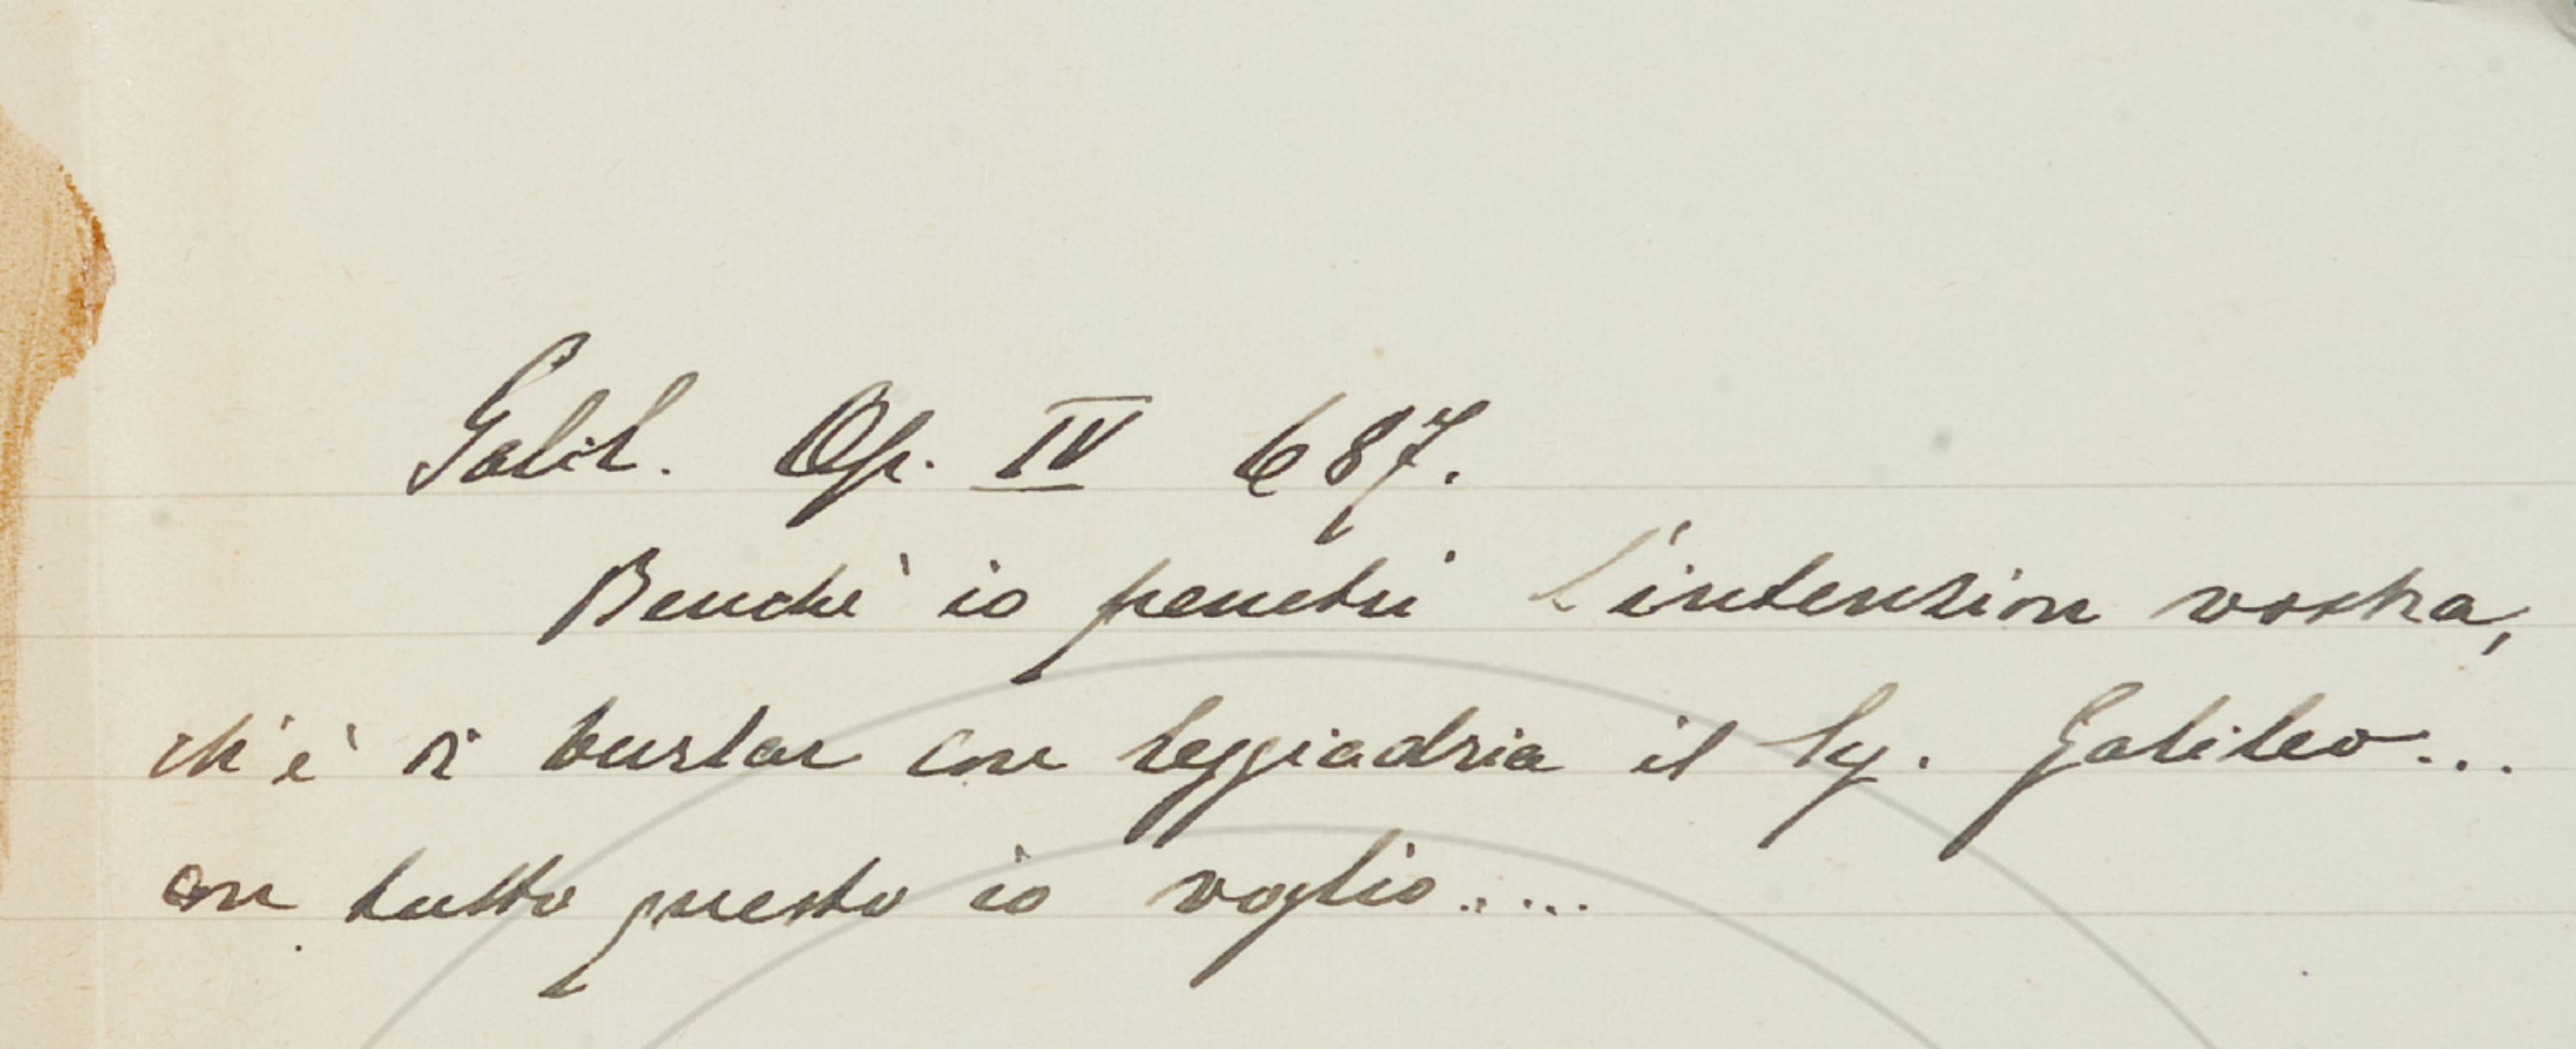 Galil. Op. IV 687.
Benchè io penetri l'intenzion vostra,
ch'è di burlar con leggiadria il Sig. Galileo...
con tutto questo io voglio.....